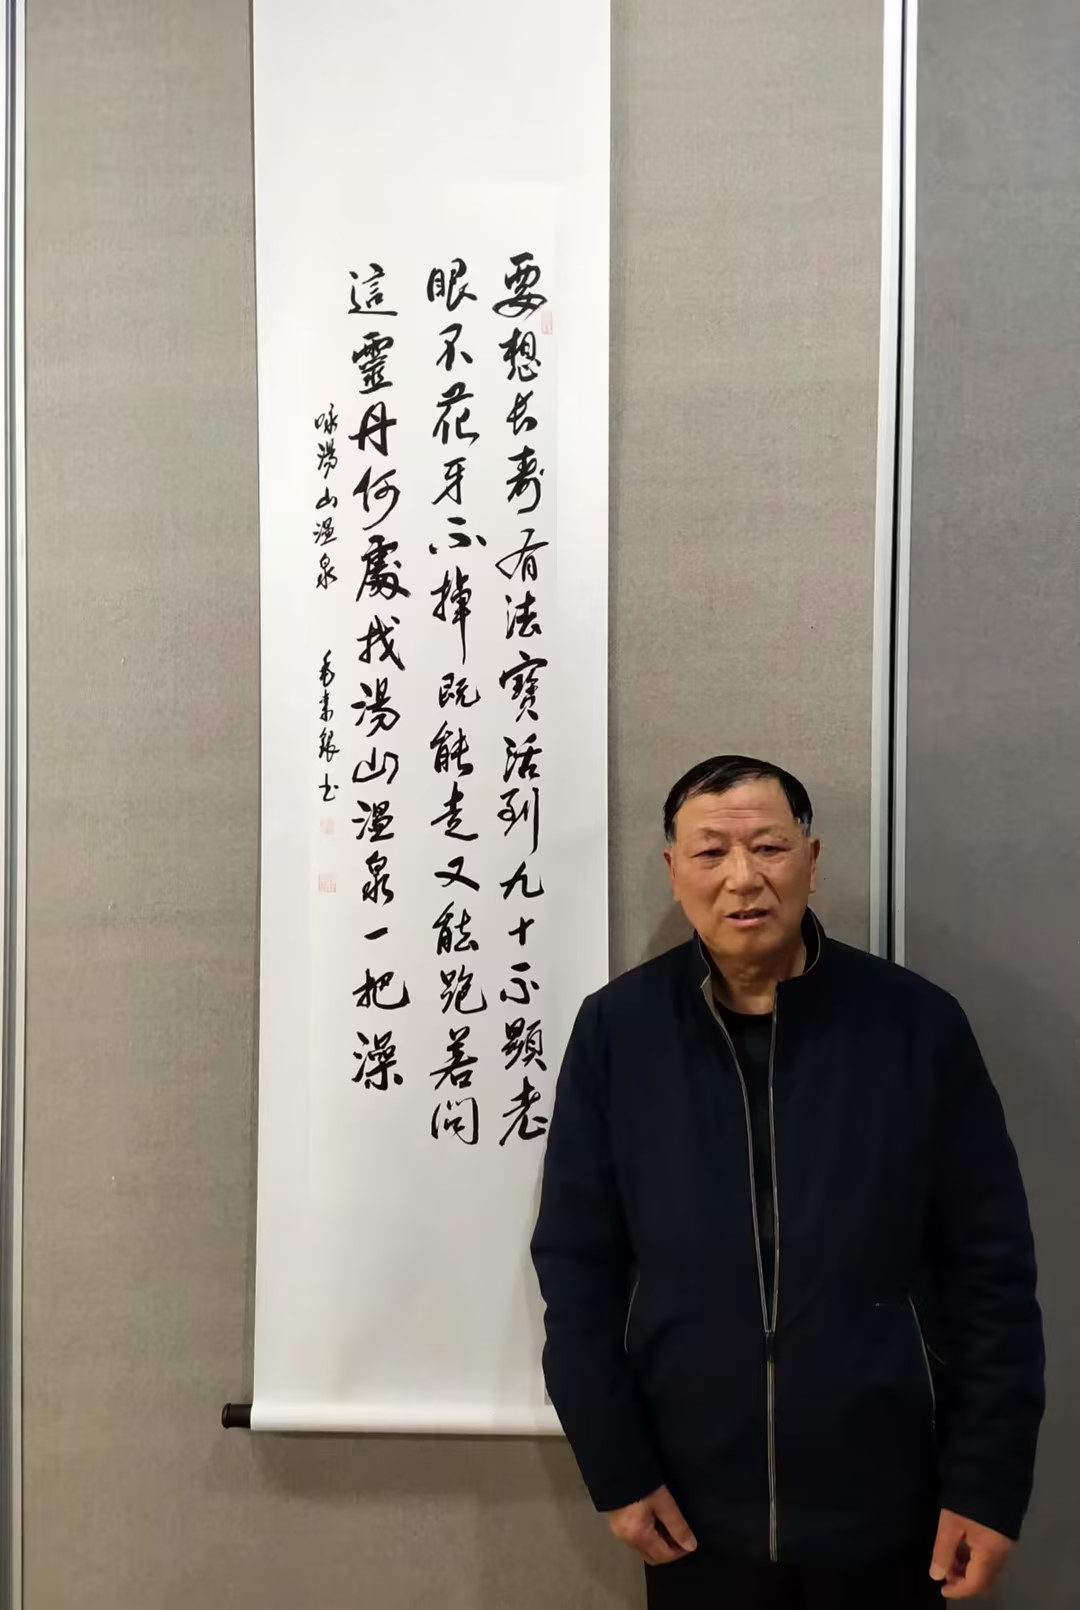 要想长寿有法寶活到九十不顯老
眼不花牙不掉既能走又能跑若问
這靈丹何處找湯山温泉一把澡
咏湯山温泉
毛素银书